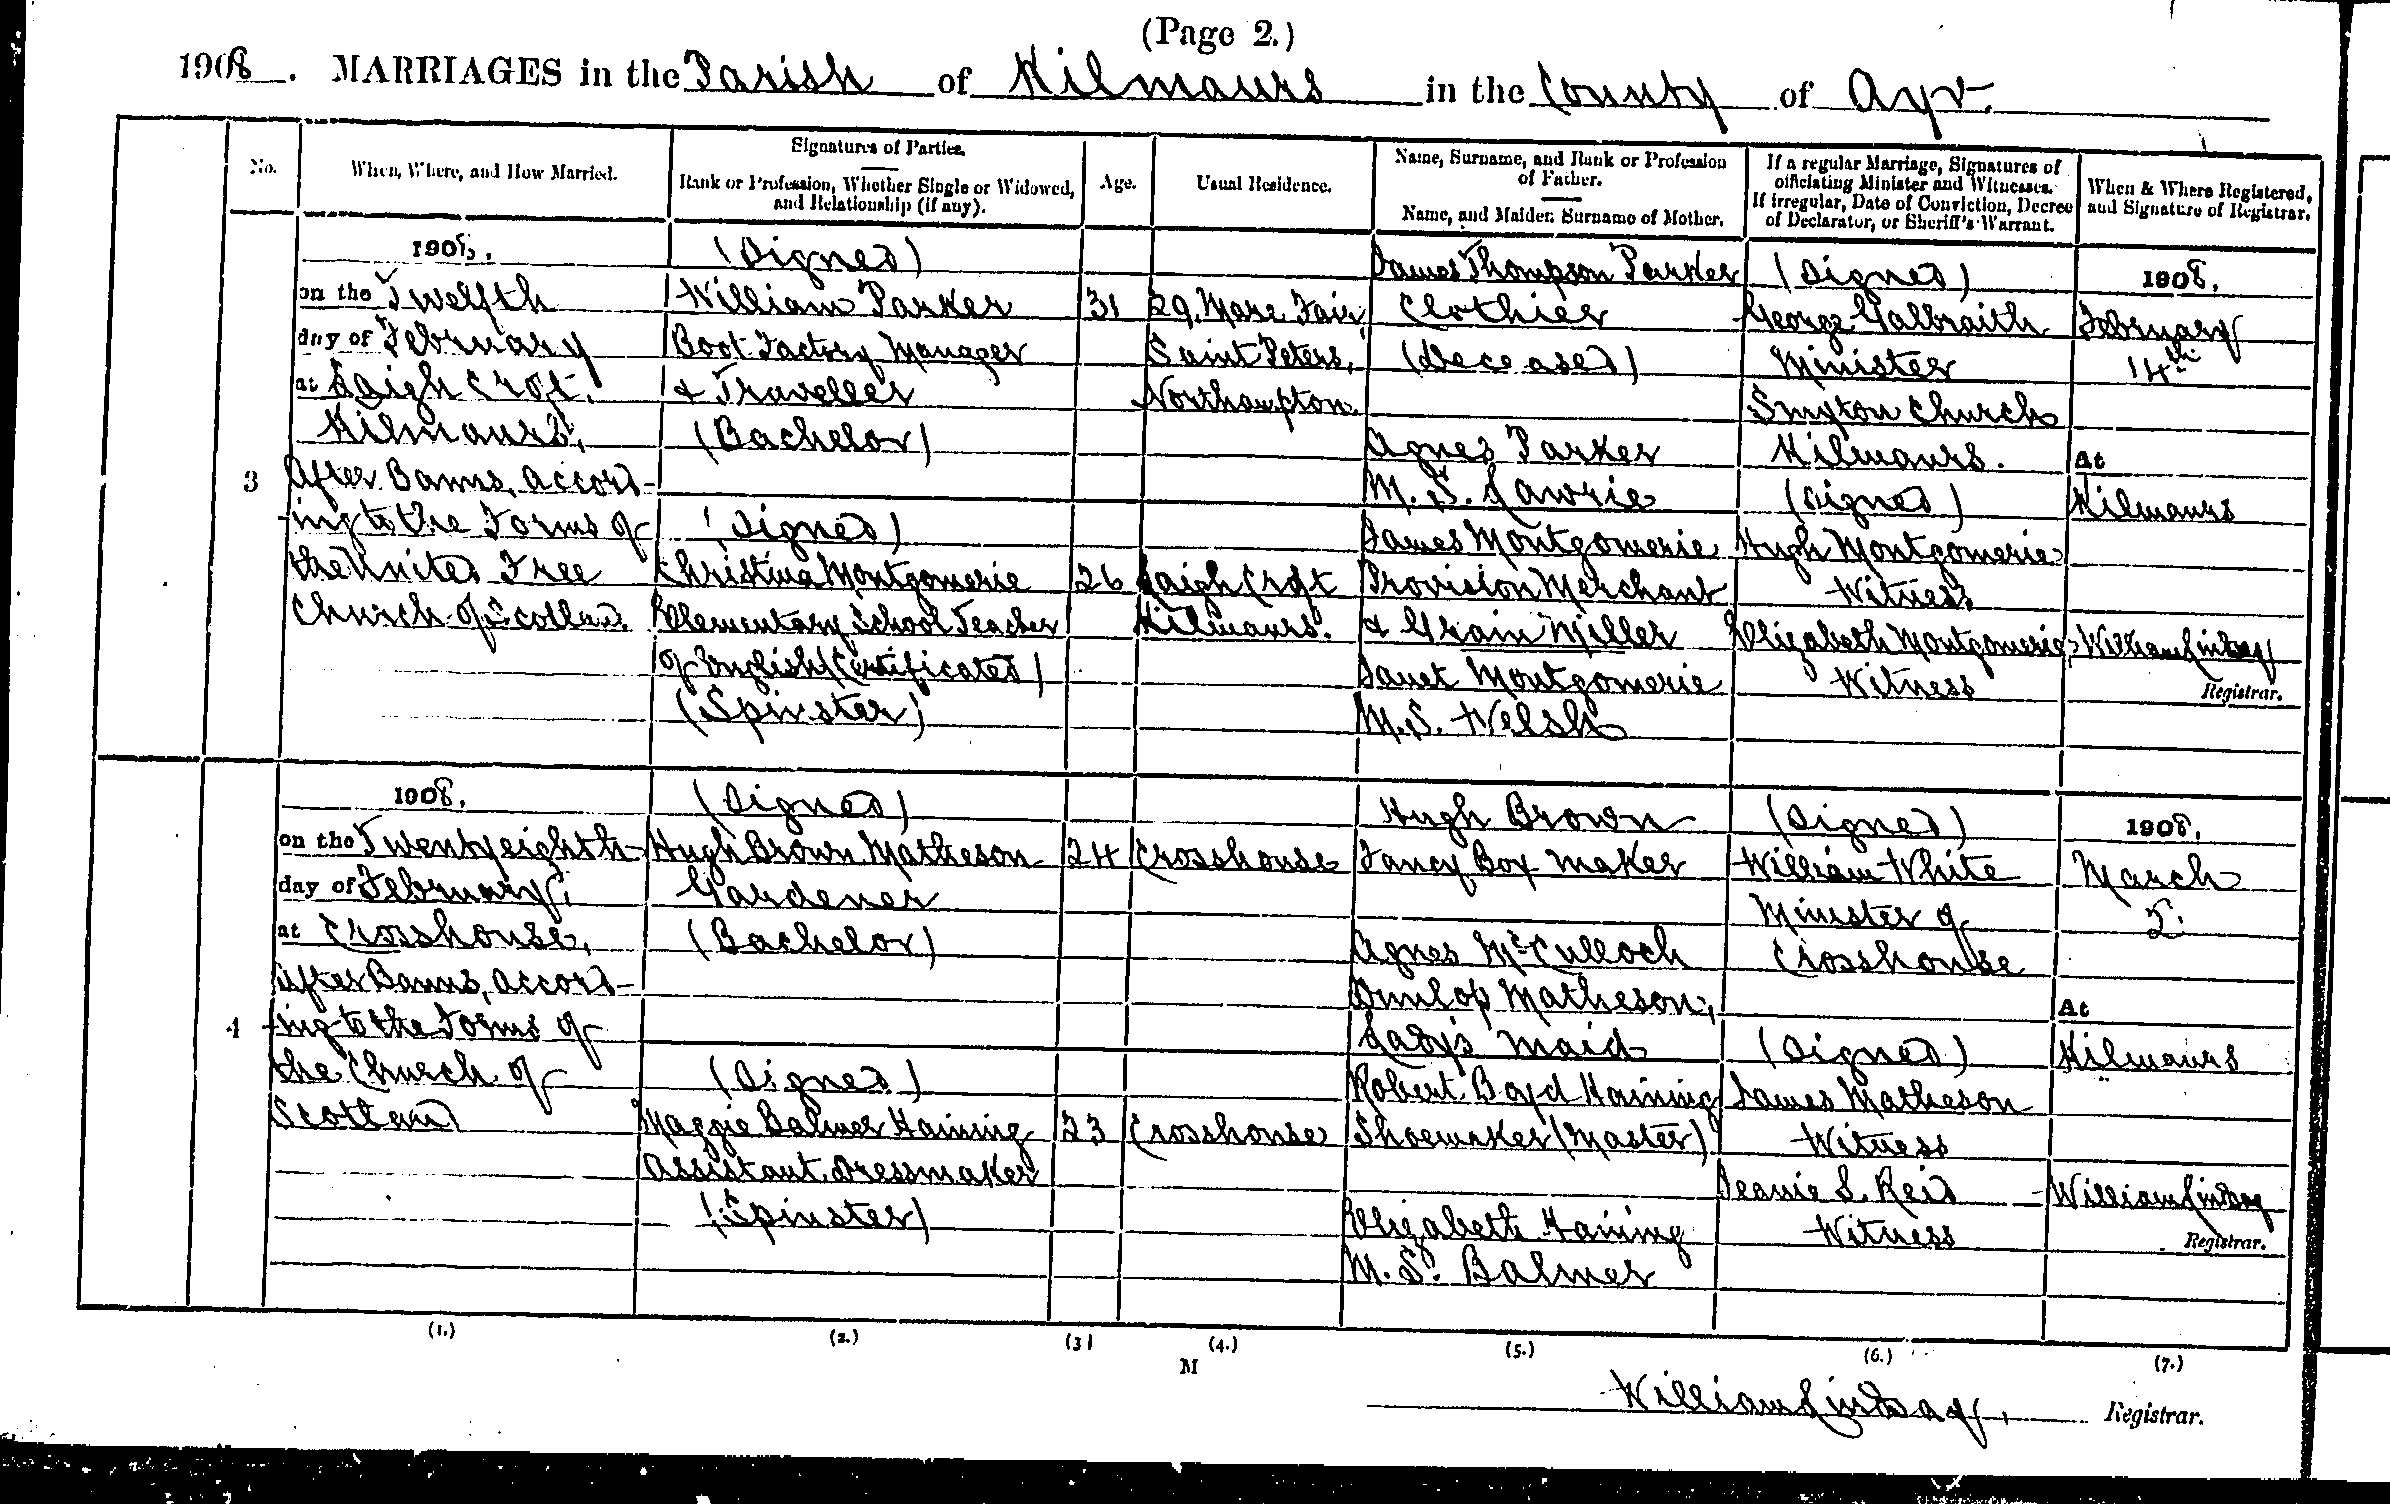 (Page 2.)
1908. MARRIAGES in the Parish of Kilmaurs in the County of Ayr.
No.
When, Where, and How Married.
Signatures of Parties.
Rank or Profession, Whether Single or Widowed, and Relationship (if any).
Age.
Usual Residence.
Name, Surname, and Rank or Profession of Father.
Name, and Maiden Surname of Mother.
If a regular Marriage, Signatures of officiating Minister and Witnesses.
If irregular, Date of Conviction, Decree of Declarator, or Sheriff's Warrant.
When & Where Registered, and Signature of Registrar.
3
1908.
on the Twelfth
day of February
at Laigh Croft.
Kilmaurs,
After Banns, accord-
ing to the Forms of
the United Free
Church of Scotland.
(Signed)
William Parker
Boot Factory Manager
& Traveller
(Bachelor)
(Signed)
Christina Montgomerie
Elementary School Teacher
of English (Certificated)
(Spinster)
31
26
29, Mare Fair,
Saint Peters,
Northampton.
Laigh Croft
Kilmaurs.
James Thompson Parker
Clothier
(deceased)
Agnes Parker
M.S. Lawrie
James Montgomerie
Provision Merchant
& Grain Miller
Janet Montgomerie
M.S. Welsh
(Signed)
George Galbraith
Minister
Smyton Church
Kilmaurs.
(Signed)
Hugh Montgomerie
Witness
Elizabeth Montgomerie
Witness
1908.
February
14th
At
Kilmaurs
William Lindsay
Registrar.
4
1908.
on the Twenty eighth
day of February,
at Crosshouse,
After Banns, accord-
ing to the Forms of
the Church of
Scotland
(Signed)
Hugh Brown Matheson
Gardener
(Bachelor)
(Signed)
Maggie Balmer Haining
Assistant Dressmaker
(Spinster)
24
23
Crosshouse
Crosshouse
Hugh Brown
Fancy Box Maker
Agnes McCulloch
Dunlop Matheson,
Lady's Maid
Robert Boyd Haining
Shoemaker (Master)
Elizabeth Haining
M.S. Balmer
(Signed)
William White
Minister of
Crosshouse
(Signed)
James Matheson
Witness
Jeanie S. Reid
Witness
1908.
March
2.
At
Kilmaurs
William Lindsay
Registrar.
(1.) (2.) (3) (4.) (5.) (6.) (7.)
M
William Lindsay, Registrar.